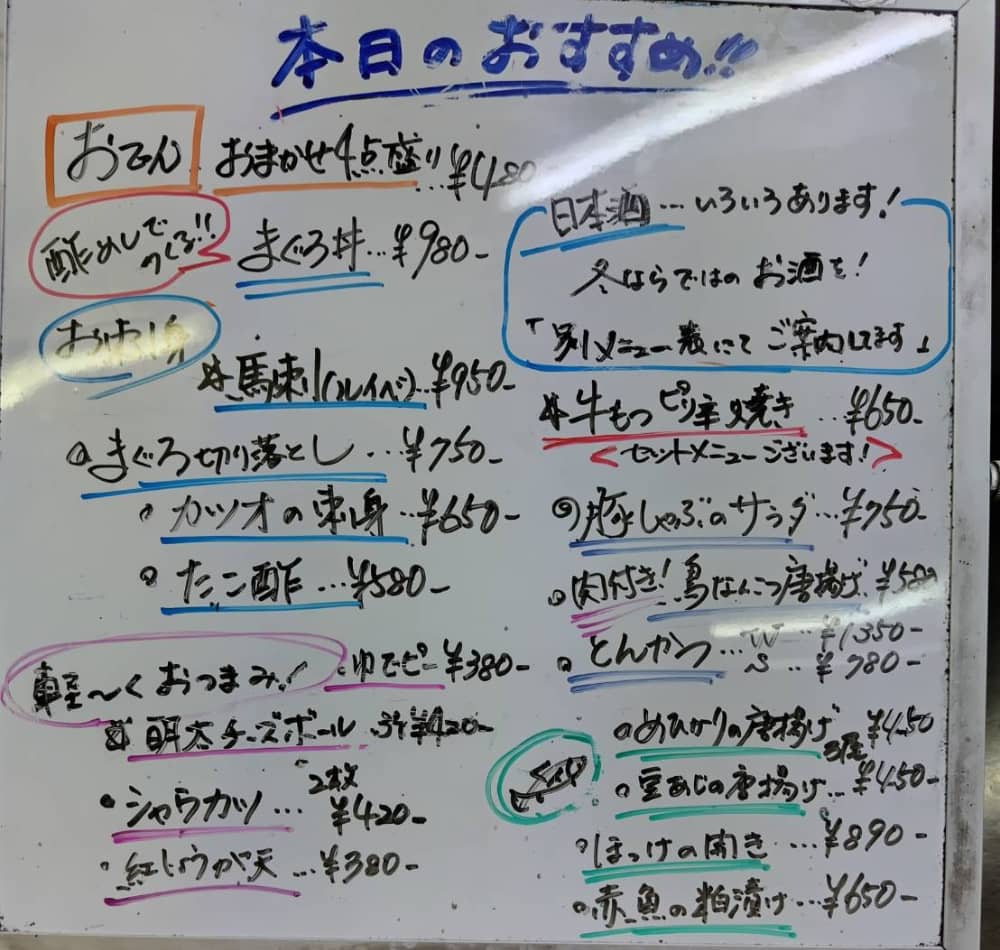 本日のおすすめ!!
おでん おまかせ4点盛り…¥480
酢めしで
つくる!!
まぐろ丼…¥980-
お刺身
馬刺し(ルイベ)…¥950-
まぐろ切り落とし…¥750-
カツオの刺身…¥650-
たこ酢…¥580-
軽〜くおつまみ!
ゆでピー ¥380-
明太チーズボール ¥420-
シャウカツ…2枚 ¥420-
紅しょうが天…¥380-
日本酒…いろいろあります!
冬ならではのお酒を!
「別メニュー表にてご案内してます」
牛もつピリ辛焼き…¥650-
<セットメニューございます!>
豚しゃぶのサラダ…¥750-
肉付き!鳥なんこつ唐揚げ ¥580
とんかつ…W…¥1350-
S…¥780-
めひかりの唐揚げ ¥450
豆あじの唐揚げ…3尾 ¥450-
ほっけの開き…¥890-
赤魚の粕漬け…¥650-